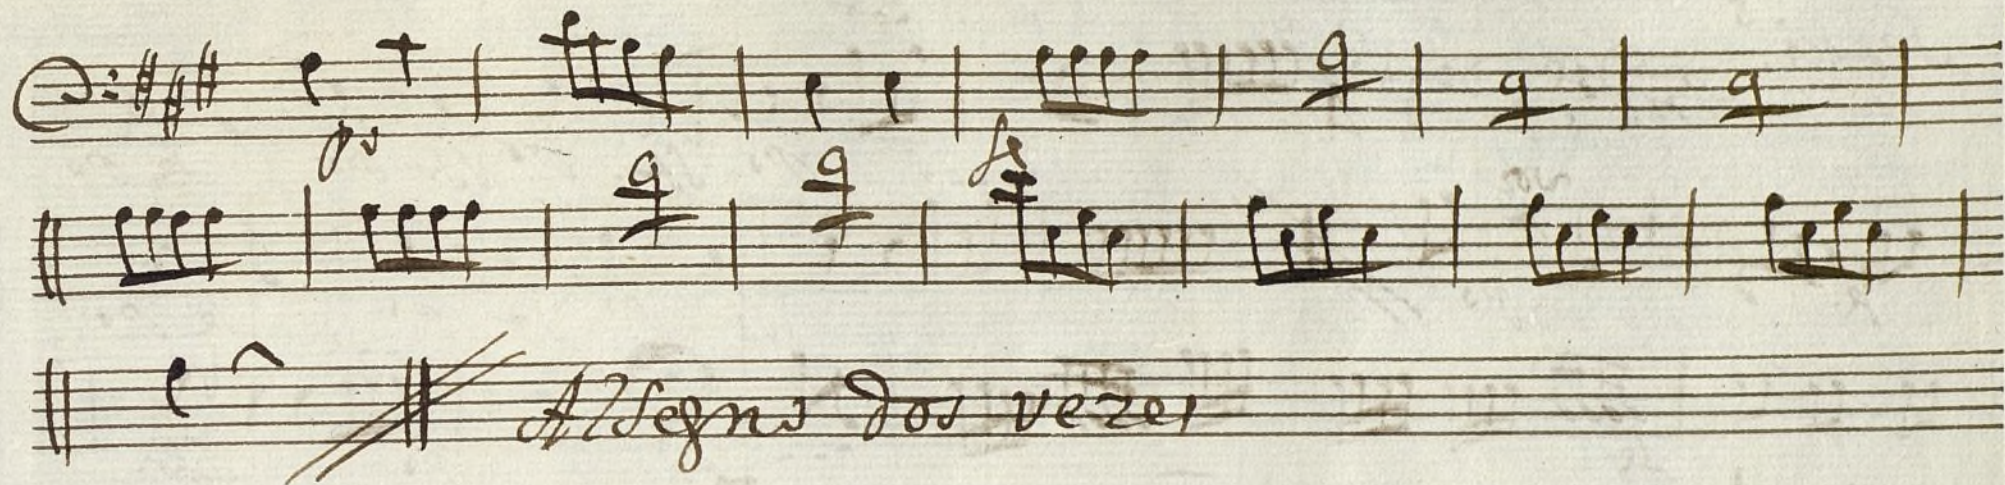 ps
fe
Al Segno dos vezes